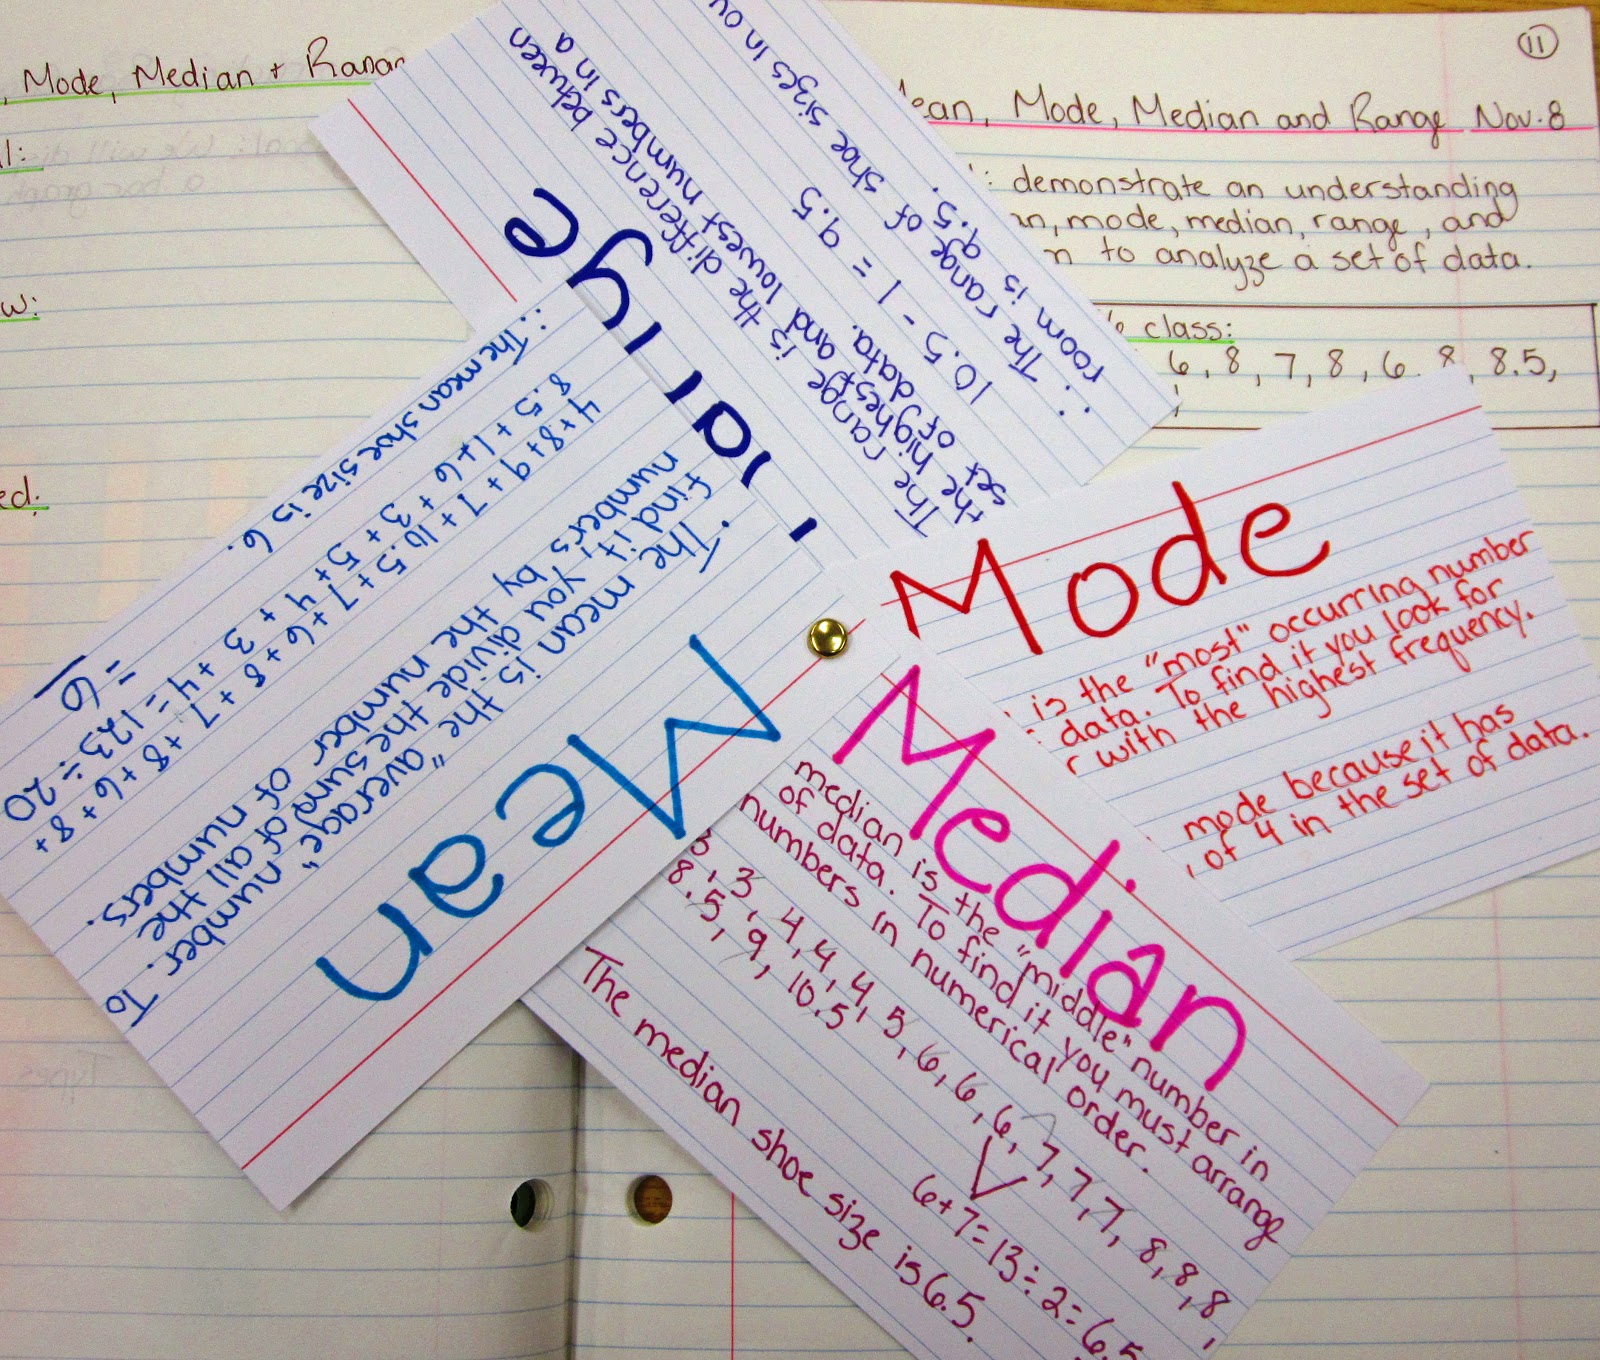 , Mode, Median +
:
w:
ed.
11
ean, Mode, Median and Range Nov. 8
: demonstrate an understanding
mode, median, range, and
to analyze a set of data.
class:
6, 8, 7, 8, 6, 8, 8.5,
Range
The range is the difference between
the highest and lowest numbers in a
set of data.
10.5 - 1 = 9.5
∴ The range of shoe sizes in
room is 9.5.
Mode
is the "most" occurring number
data. To find it you look for
with the highest frequency.
mode because it has
of 4 in the set of data.
Mean
The mean is the "average" number. To
find it, you divide the sum of all the
numbers by the number of numbers.
4+8+9+7+10.5+7+6+8+7+8+6+8+
8.5+1+6+3+5+4+3+4=123÷20
=6
∴ The mean shoe size is 6.
Median
median is the "middle" number in
of data. To find it you must arrange
numbers in numerical order.
3, 3, 4, 4, 4, 5, 6, 6, 6, 7, 7, 7, 8, 8, 8,
8.5, 9, 10.5
6+7=13÷2=6.5
The median shoe size is 6.5.